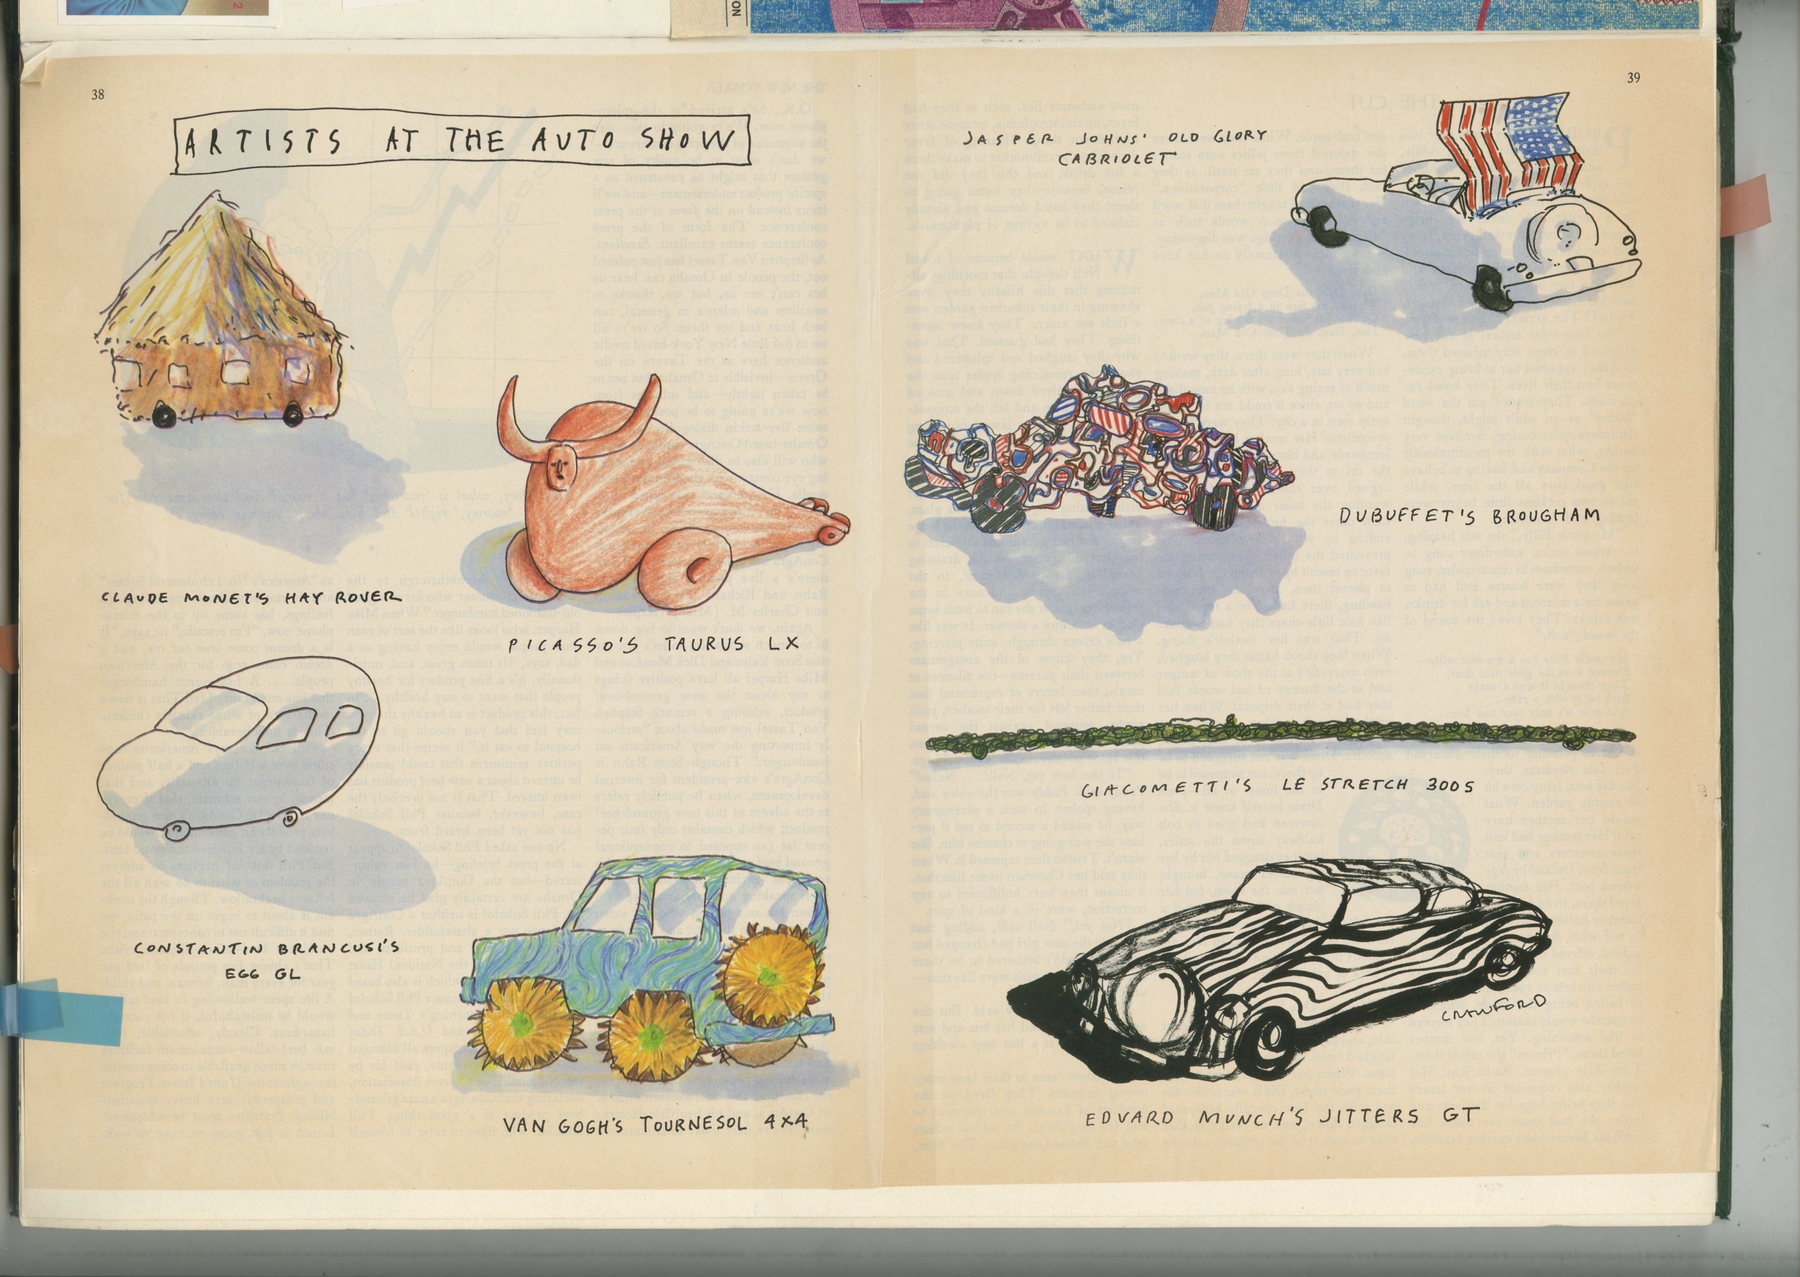 38
ARTISTS AT THE AUTO SHOW
CLAUDE MONET'S HAY ROVER
PICASSO'S TAURUS LX
CONSTANTIN BRANCUSI'S
EGG GL
VAN GOGH'S TOURNESOL 4X4
39
JASPER JOHNS' OLD GLORY
CABRIOLET
DUBUFFET'S BROUGHAM
GIACOMETTI'S LE STRETCH 300S
CRAWFORD
EDVARD MUNCH'S JITTERS GT